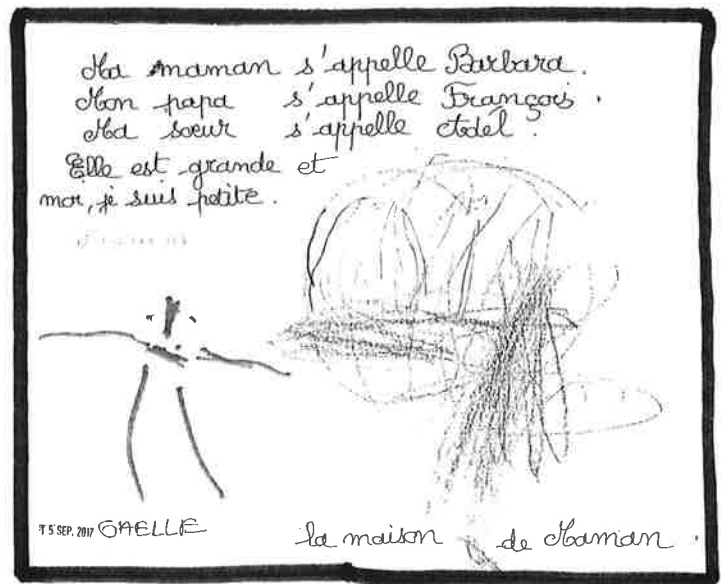 Ma maman s'appelle Barbara.
Mon papa s'appelle François.
Ma sœur s'appelle Adél.
Elle est grande et
moi, je suis petite.
5 SEP. 2017 GAELLE
la maison de Maman